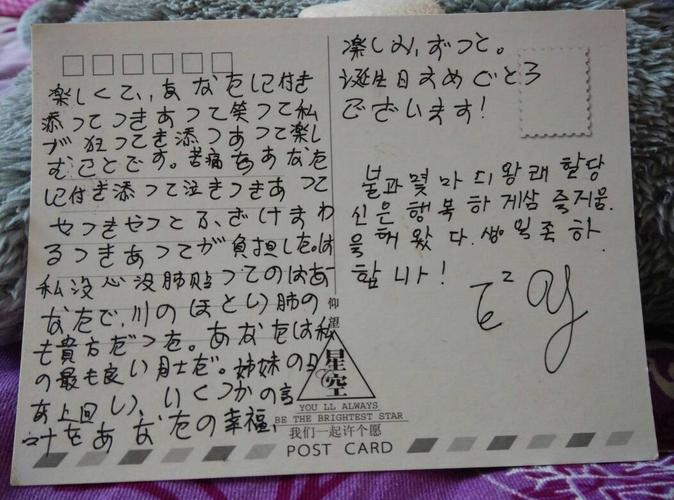 楽しくて,あなたに付き
添ってつきあって笑って私
が狂ってき添つあって楽し
むことです。苦痛をあなた
に付き添って泣きつきあって
やっきやっとふ、ざけまわ
るつきあってが負担した。は
私没心没肺贴ってのはあ
なたで,川のほとり肺の
も貴方だった。あなたは私
の最も良い月士だ。姉妹の日
あ上回い),いくつかの言
叶をあなたの幸福、
楽しみ,ずっと。
诞生日おめでとう
ございます!
불과 몇 마디 왕래 할 당
신은 행복하게 삼 즉거움.
을 해 왔다. 생일 족하.
합니다!
仰望
星空
YOU LL ALWAYS
BE THE BRIGHTEST STAR
我们一起许个愿
POST CARD